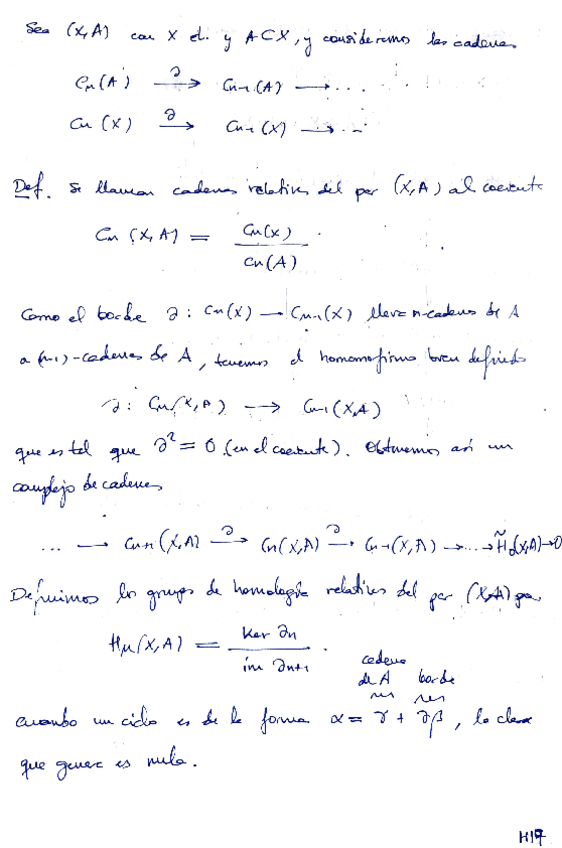 Sea (X,A) con X et. y A⊂X, y consideremos las cadenas
Cn(A) —∂→ Cn-1(A) → ...
Cn(X) —∂→ Cn-1(X) → ...
Def. Se llaman cadenas relativas del par (X,A) al cociente
Cn(X,A) = Cn(X) / Cn(A) .
Como el borde ∂: Cn(X) → Cn-1(X) lleva n-cadenas de A
a (n-1)-cadenas de A, tenemos el homomorfismo bien definido
∂: Cn(X,A) → Cn-1(X,A)
que es tal que ∂² = 0 (en el cociente). Obtenemos así un
complejo de cadenas
... → Cn+1(X,A) —∂→ Cn(X,A) —∂→ Cn-1(X,A) → ... → H̃₀(X,A) → 0
Definimos los grupos de homología relativos del par (X,A) por
Hn(X,A) = ker ∂n / im ∂n+1 .
cadena
de A borde
cuando un ciclo es de la forma α = γ + ∂β, la clase
que genera es nula.
H17